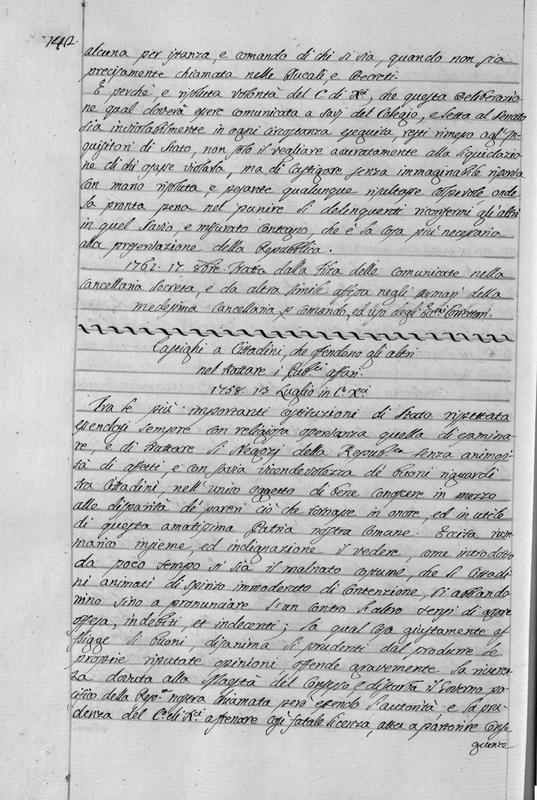 142.
alcuna per istanza, e comando di chi si sia, quando non sia
precisamente chiamata nelle Ducali, e Decreti.
E perchè è risoluta volontà del C. di Xci, che questa Deliberazio
ne qual doverà essere comunicata a Savj del Colegio, e letta al Senato
sia inviolabilmente in ogni circostanza eseguita, resti rimesso agl' In
quisitori di Stato, non solo il vegliare accuratamente alla
ne di chi osasse violarla, ma di castigare senza immaginabile riserva
con mano risoluta, e pesante qualunque risultasse colpevole, onde
la pronta pena nel punire li delinquenti riconfermi gli altri
in quel savio, e misurato contegno, che è la cosa più necessaria
alla preservazione della Repubblica.
1762. 17. Tratta dalla filza delle comunicate nella
Cancellaria Secreta, e da altra simile affissa negli Armarj della
medesima Cancellaria comando, ed uso degli Correttori.
Castighi a Cittadini, che offendono gli altri
nel trattare i affari.
1758. 13 Luglio in C. Xci
Tra le più importanti costituzioni di Stato rispettata
essendosi sempre con religiosa osservanza quella di esamina
re, e di trattare li Negozj della Repubca senza animosi
tà di affetti, e con savia vicendevolezza de' buoni riguardi
tra Cittadini, nell' unico oggetto di bene conoscere in mezzo
alla disparità de' pareri ciò che tornasse in onore, ed in utile
di questa amatissima Patria nostra Comune. Eccita ram
marico insieme, ed indignazione il vedere, come introdotto
da poco tempo si sia il malnato costume, che li Cittadi
ni animati di spirito immoderato di contenzione, si abbando
nino sino a pronunciare l'un contro l'altro sensi di
offesa, indebiti, et indecenti; la qual cosa giustamente af
fligge li buoni, disanima li prudenti dal produrre le
proprie riputate opinioni offende gravemente la riveren
za dovuta alla Maestà del Consesso e disturba il Governo pa
cifico della Repca nostra chiamata però essendo l'autorità e la pru
denza del C. di Xci a frenare così fatale licenza, atta a partorire conse
guenze